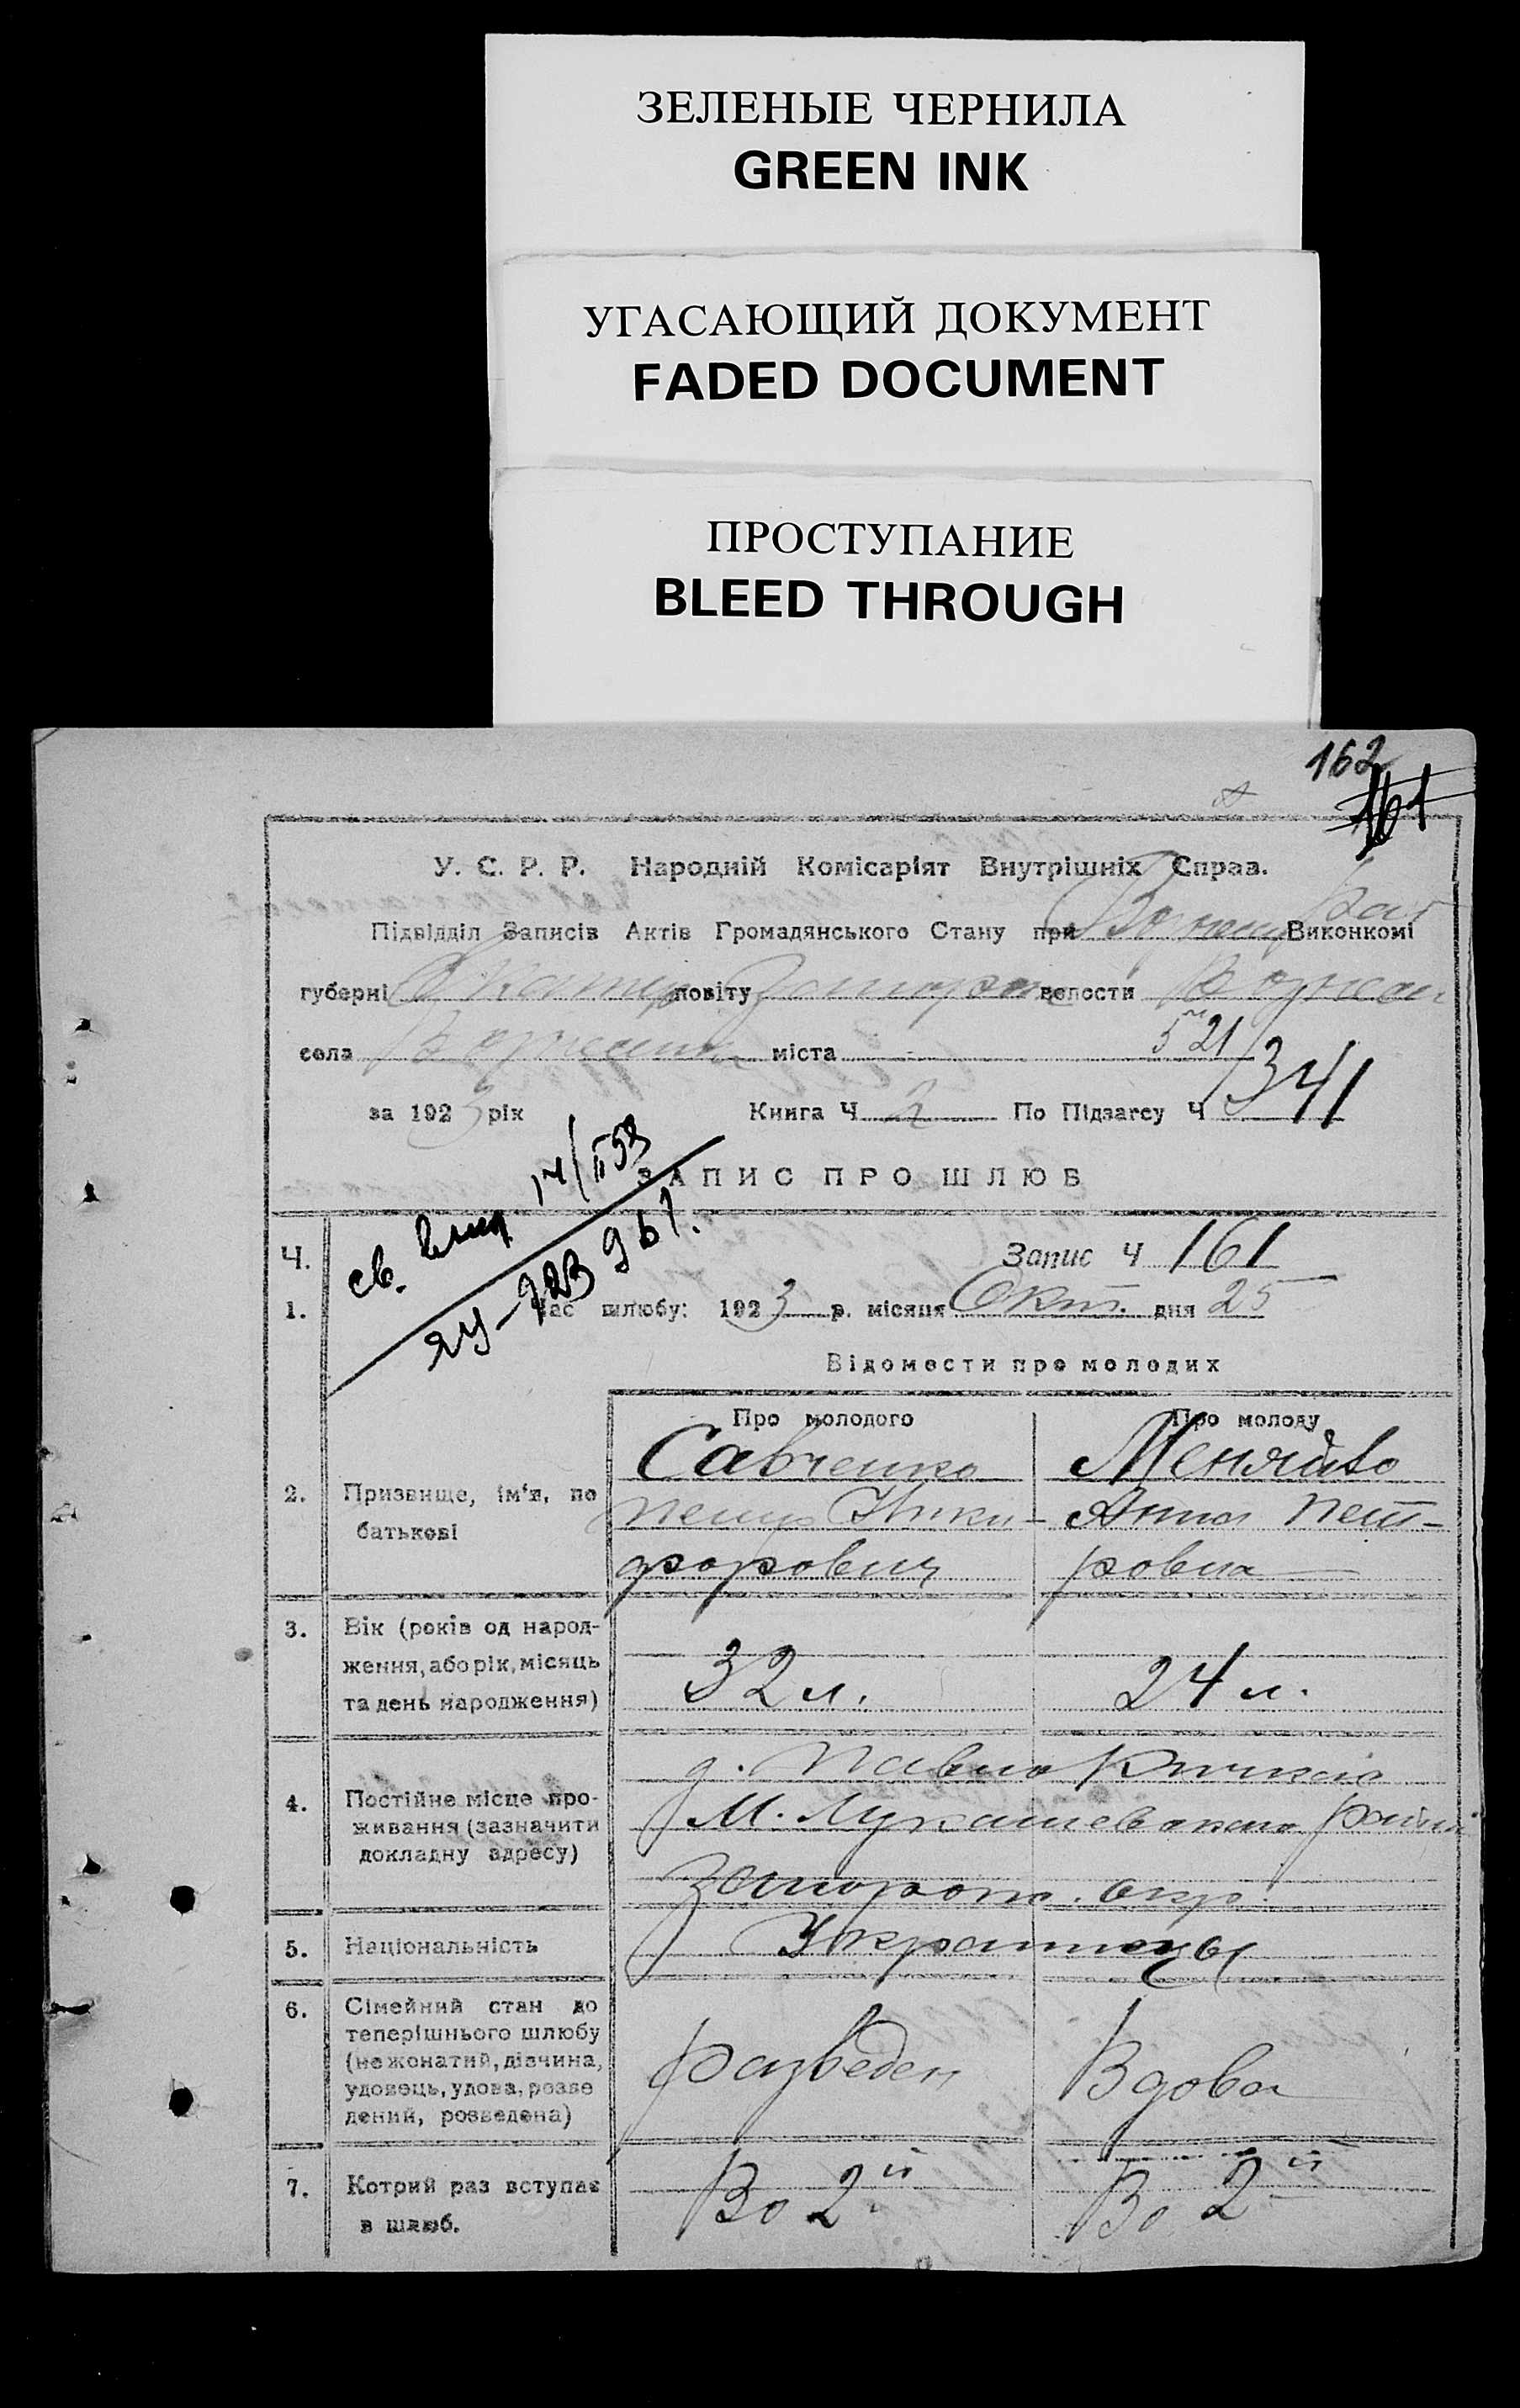 ЗЕЛЕНЫЕ ЧЕРНИЛА
GREEN INK
УГАСАЮЩИЙ ДОКУМЕНТ
FADED DOCUMENT
ПРОСТУПАНИЕ
BLEED THROUGH
162
161
У. С. Р. Р. Народній Комісаріят Внутрішніх Справ.
Підвідділ Записів Актів Громадянського Стану при Виконкомі
губерні повіту волости
села міста 521
за 1923 рік Книга Ч 2 По Підзагсу Ч 341
св. 14/II 53
ЗАПИС ПРО ШЛЮБ
Ч. Запис Ч 161
1. Час шлюбу: 1923 р. місяця Окт. дня 25
Відомости про молодих
Про молодого Про молоду
Савченко Меняйло
2. Призвище, ім'я, по Петр Ники- Анна Пет-
батькові форович ровна
3. Вік (років од народ-
ження, або рік, місяць 32 л. 24 л.
та день народження)
д. Павло Кичкас
4. Постійне місце про- М. Лукашевского района
живання (зазначити
докладну адресу) Запорож. окр.
5. Національність Украинцы
6. Сімейний стан до
теперішнього шлюбу
(нежонатий, дівчина, разведен Вдова
удовець, удова, розве
дений, розведена)
7. Котрий раз вступає Во 2й Во 2й
в шлюб.